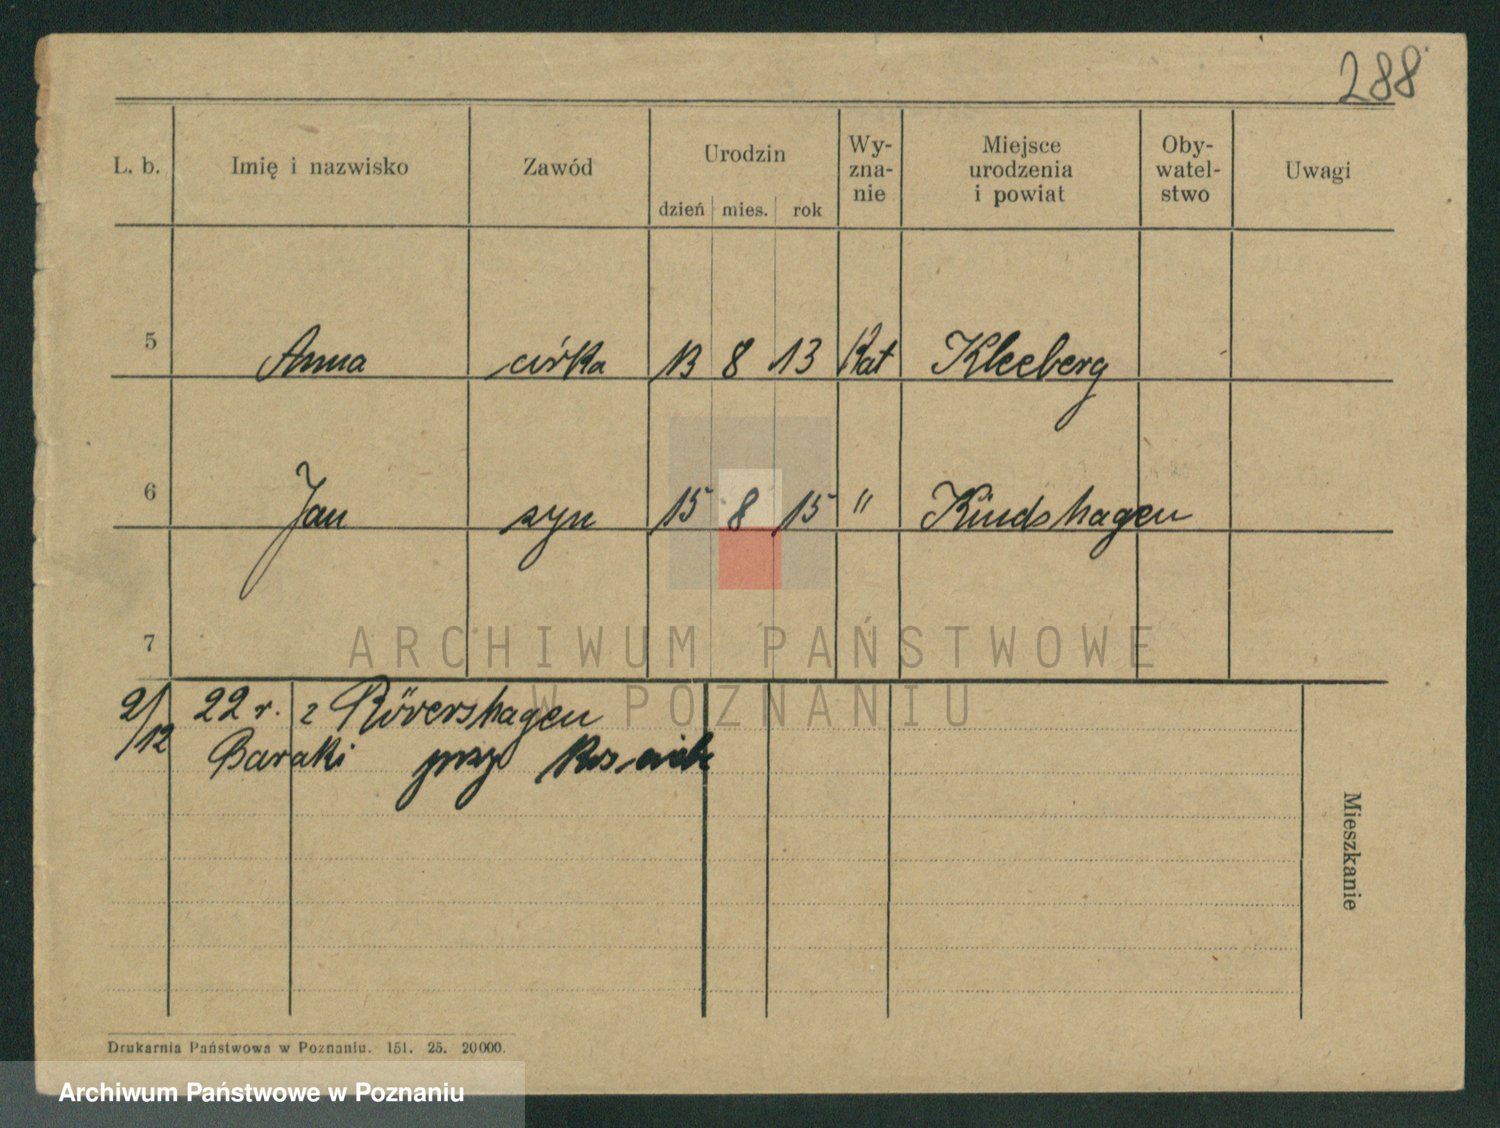 288
L. b. Imię i nazwisko Zawód Urodzin dzień mies. rok Wy-zna-nie Miejsce urodzenia i powiat Oby-watel-stwo Uwagi
5 Anna córka 13 8 13 Kat Kleeberg
6 Jan syn 15 8 15 " Kindshagen
7
ARCHIWUM PAŃSTWOWE
W POZNANIU
2/12 22 r. z Rövershagen
Baraki przy
Mieszkanie
Drukarnia Państwowa w Poznaniu. 151. 25. 20000.
Archiwum Państwowe w Poznaniu